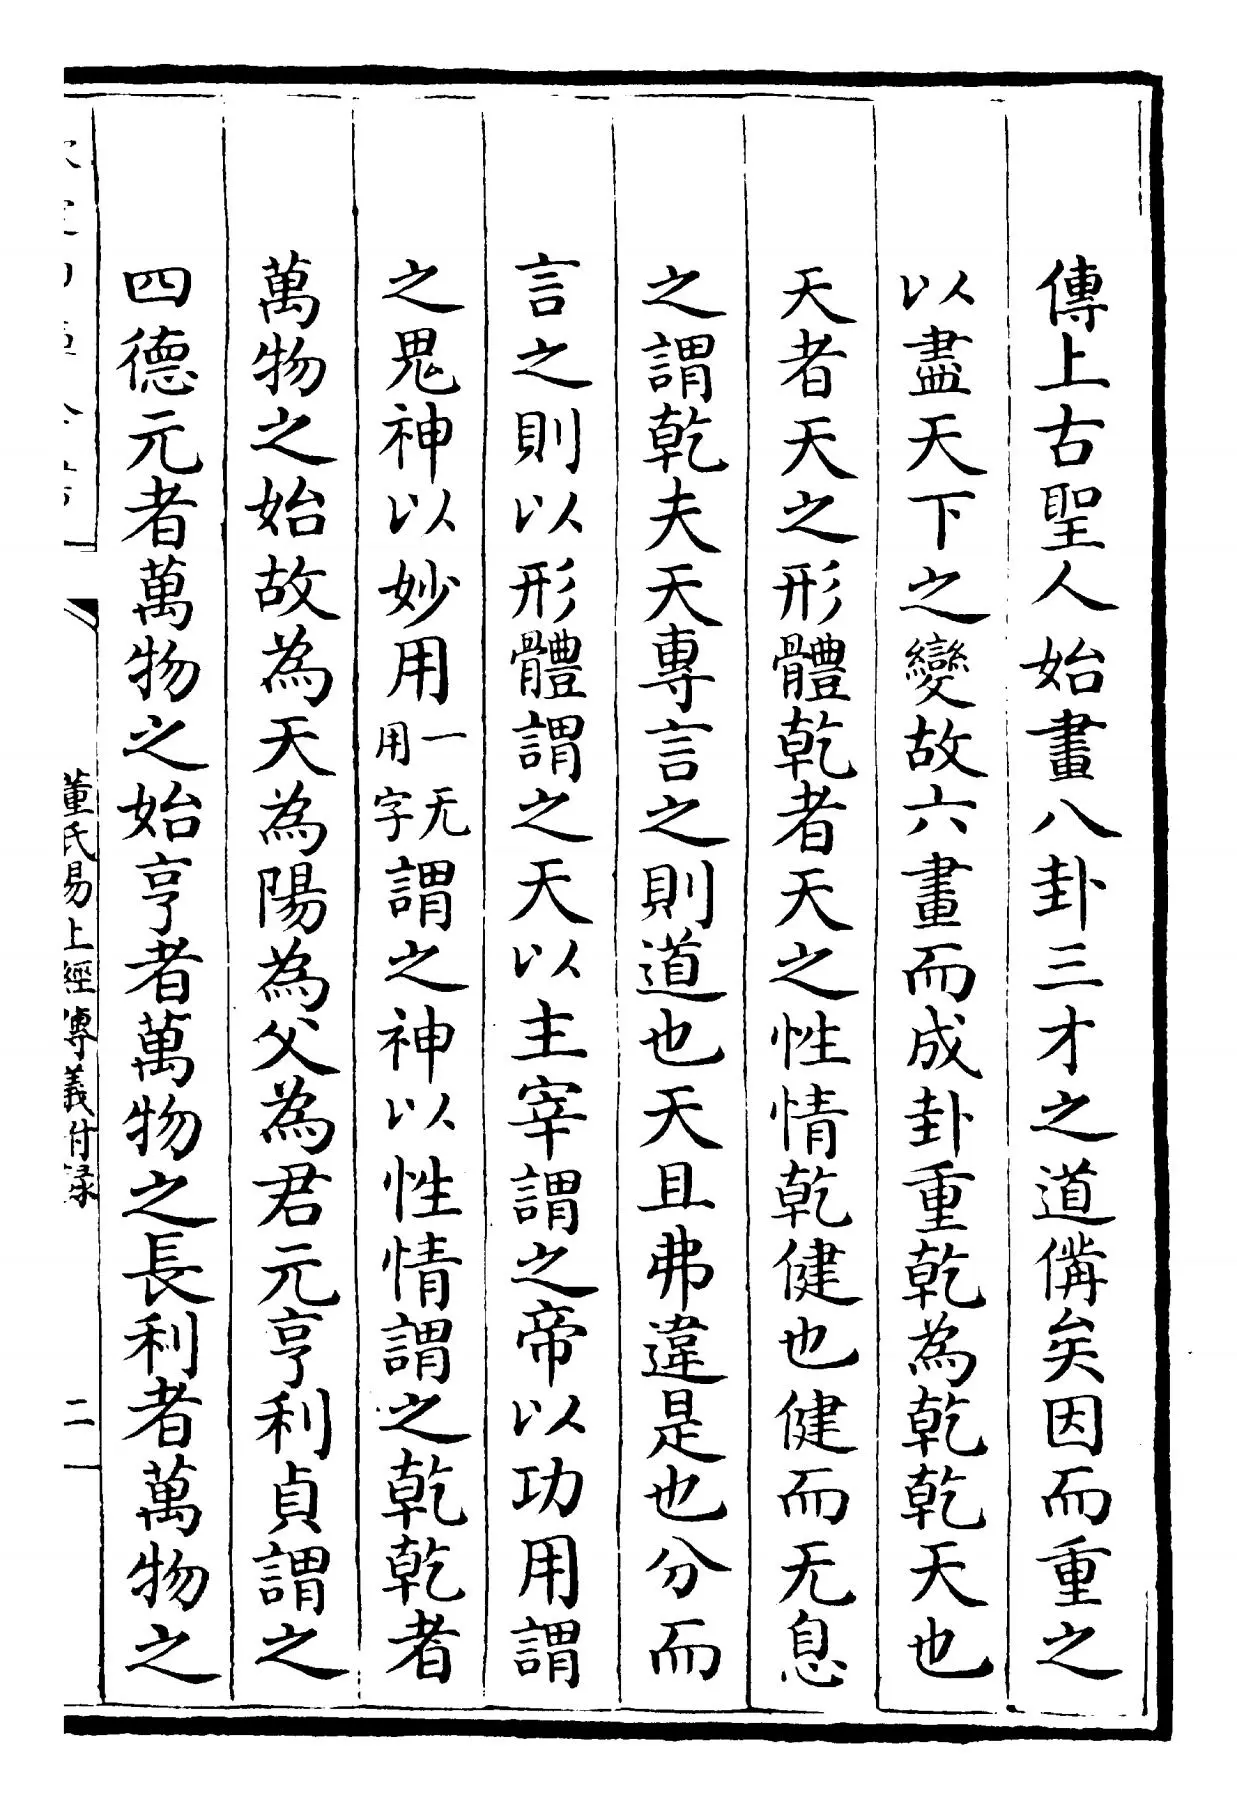 傳上古聖人始畫八卦三才之道備矣因而重之
以盡天下之變故六畫而成卦重乾為乾乾天也
天者天之形體乾者天之性情乾健也健而无息
之謂乾夫天專言之則道也天且弗違是也分而
言之則以形體謂之天以主宰謂之帝以功用謂
之鬼神以妙用一无用字謂之神以性情謂之乾乾者
萬物之始故為天為陽為父為君元亨利貞謂之
四德元者萬物之始亨者萬物之長利者萬物之
董氏易上經傳義付录
二